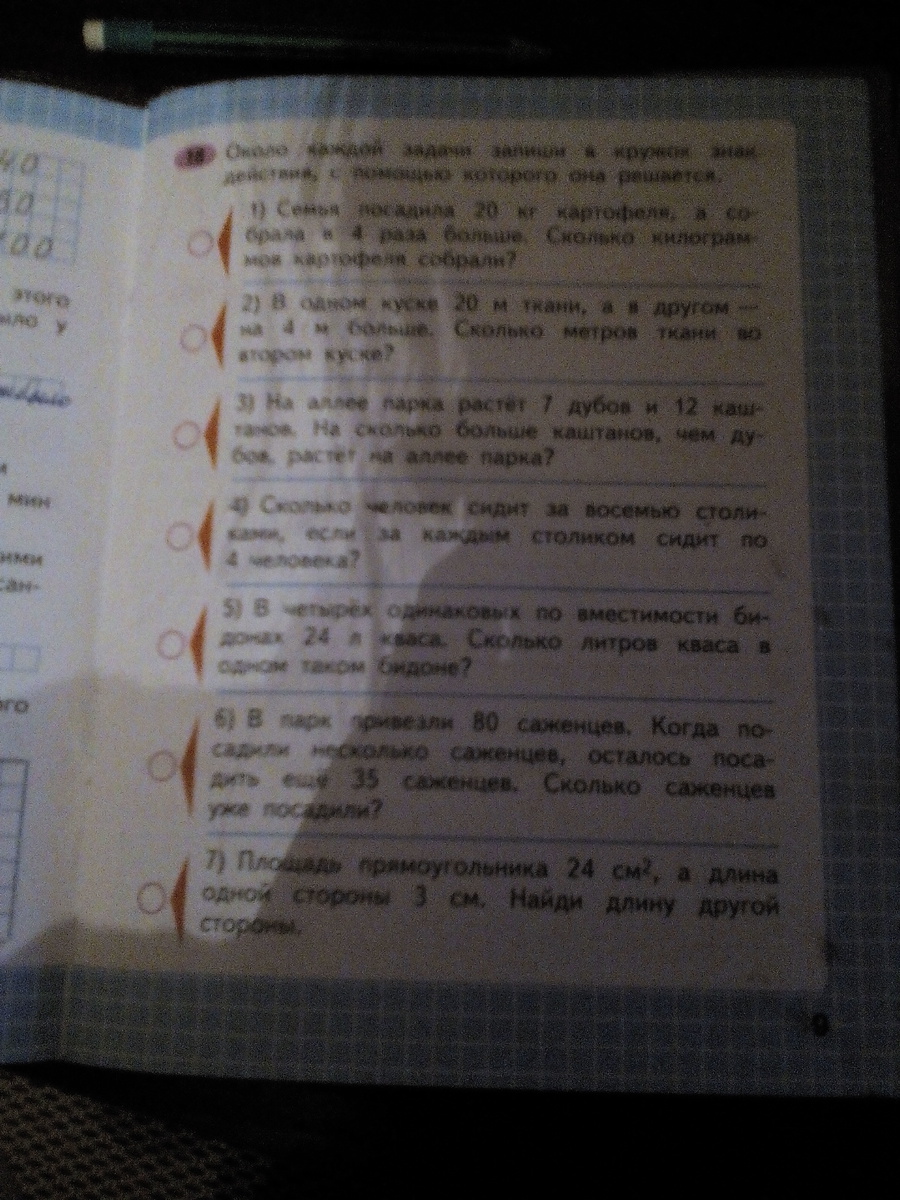 40
80
100
этого
ыло у
мин
ими
сан-
ого
18 Около каждой задачи запиши в кружок знак
действия, с помощью которого она решается.
1) Семья посадила 20 кг картофеля, а со-
брала в 4 раза больше. Сколько килограм-
мов картофеля собрали?
2) В одном куске 20 м ткани, а в другом —
на 4 м больше. Сколько метров ткани во
втором куске?
3) На аллее парка растёт 7 дубов и 12 каш-
танов. На сколько больше каштанов, чем ду-
бов, растёт на аллее парка?
4) Сколько человек сидит за восемью столи-
ками, если за каждым столиком сидит по
4 человека?
5) В четырёх одинаковых по вместимости би-
донах 24 л кваса. Сколько литров кваса в
одном таком бидоне?
6) В парк привезли 80 саженцев. Когда по-
садили несколько саженцев, осталось поса-
дить ещё 35 саженцев. Сколько саженцев
уже посадили?
7) Площадь прямоугольника 24 см², а длина
одной стороны 3 см. Найди длину другой
стороны.
9